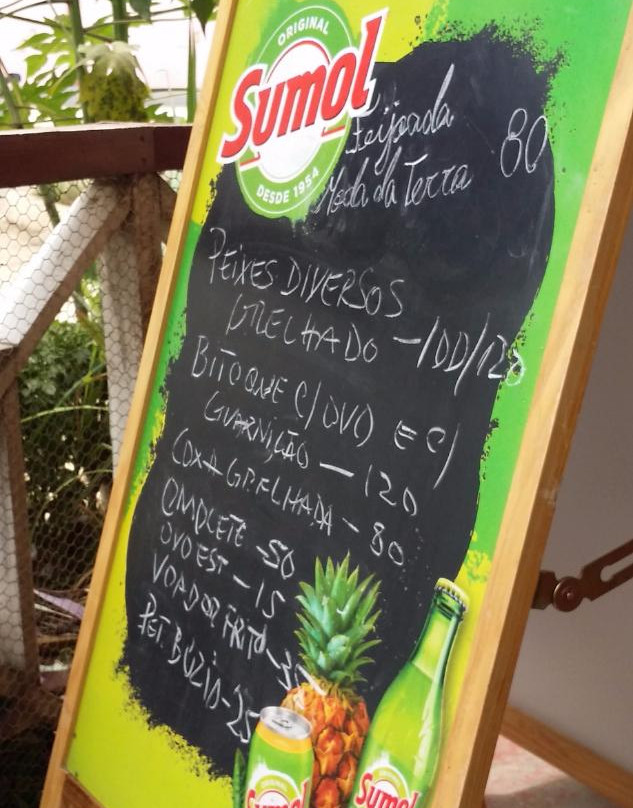 ORIGINAL
Sumol
DESDE 1954
Feijoada 80
Moda da Terra
PEIXES DIVERSOS
GRELHADO - 100/120
BITOQUE C/ OVO E C/
GUARNIÇÃO - 120
COXA GRELHADA - 80
OMOLETE - 50
OVO EST - 15
VOADOR FRITO - 35
PET. BÚZIO - 25
Sumol
Sumol